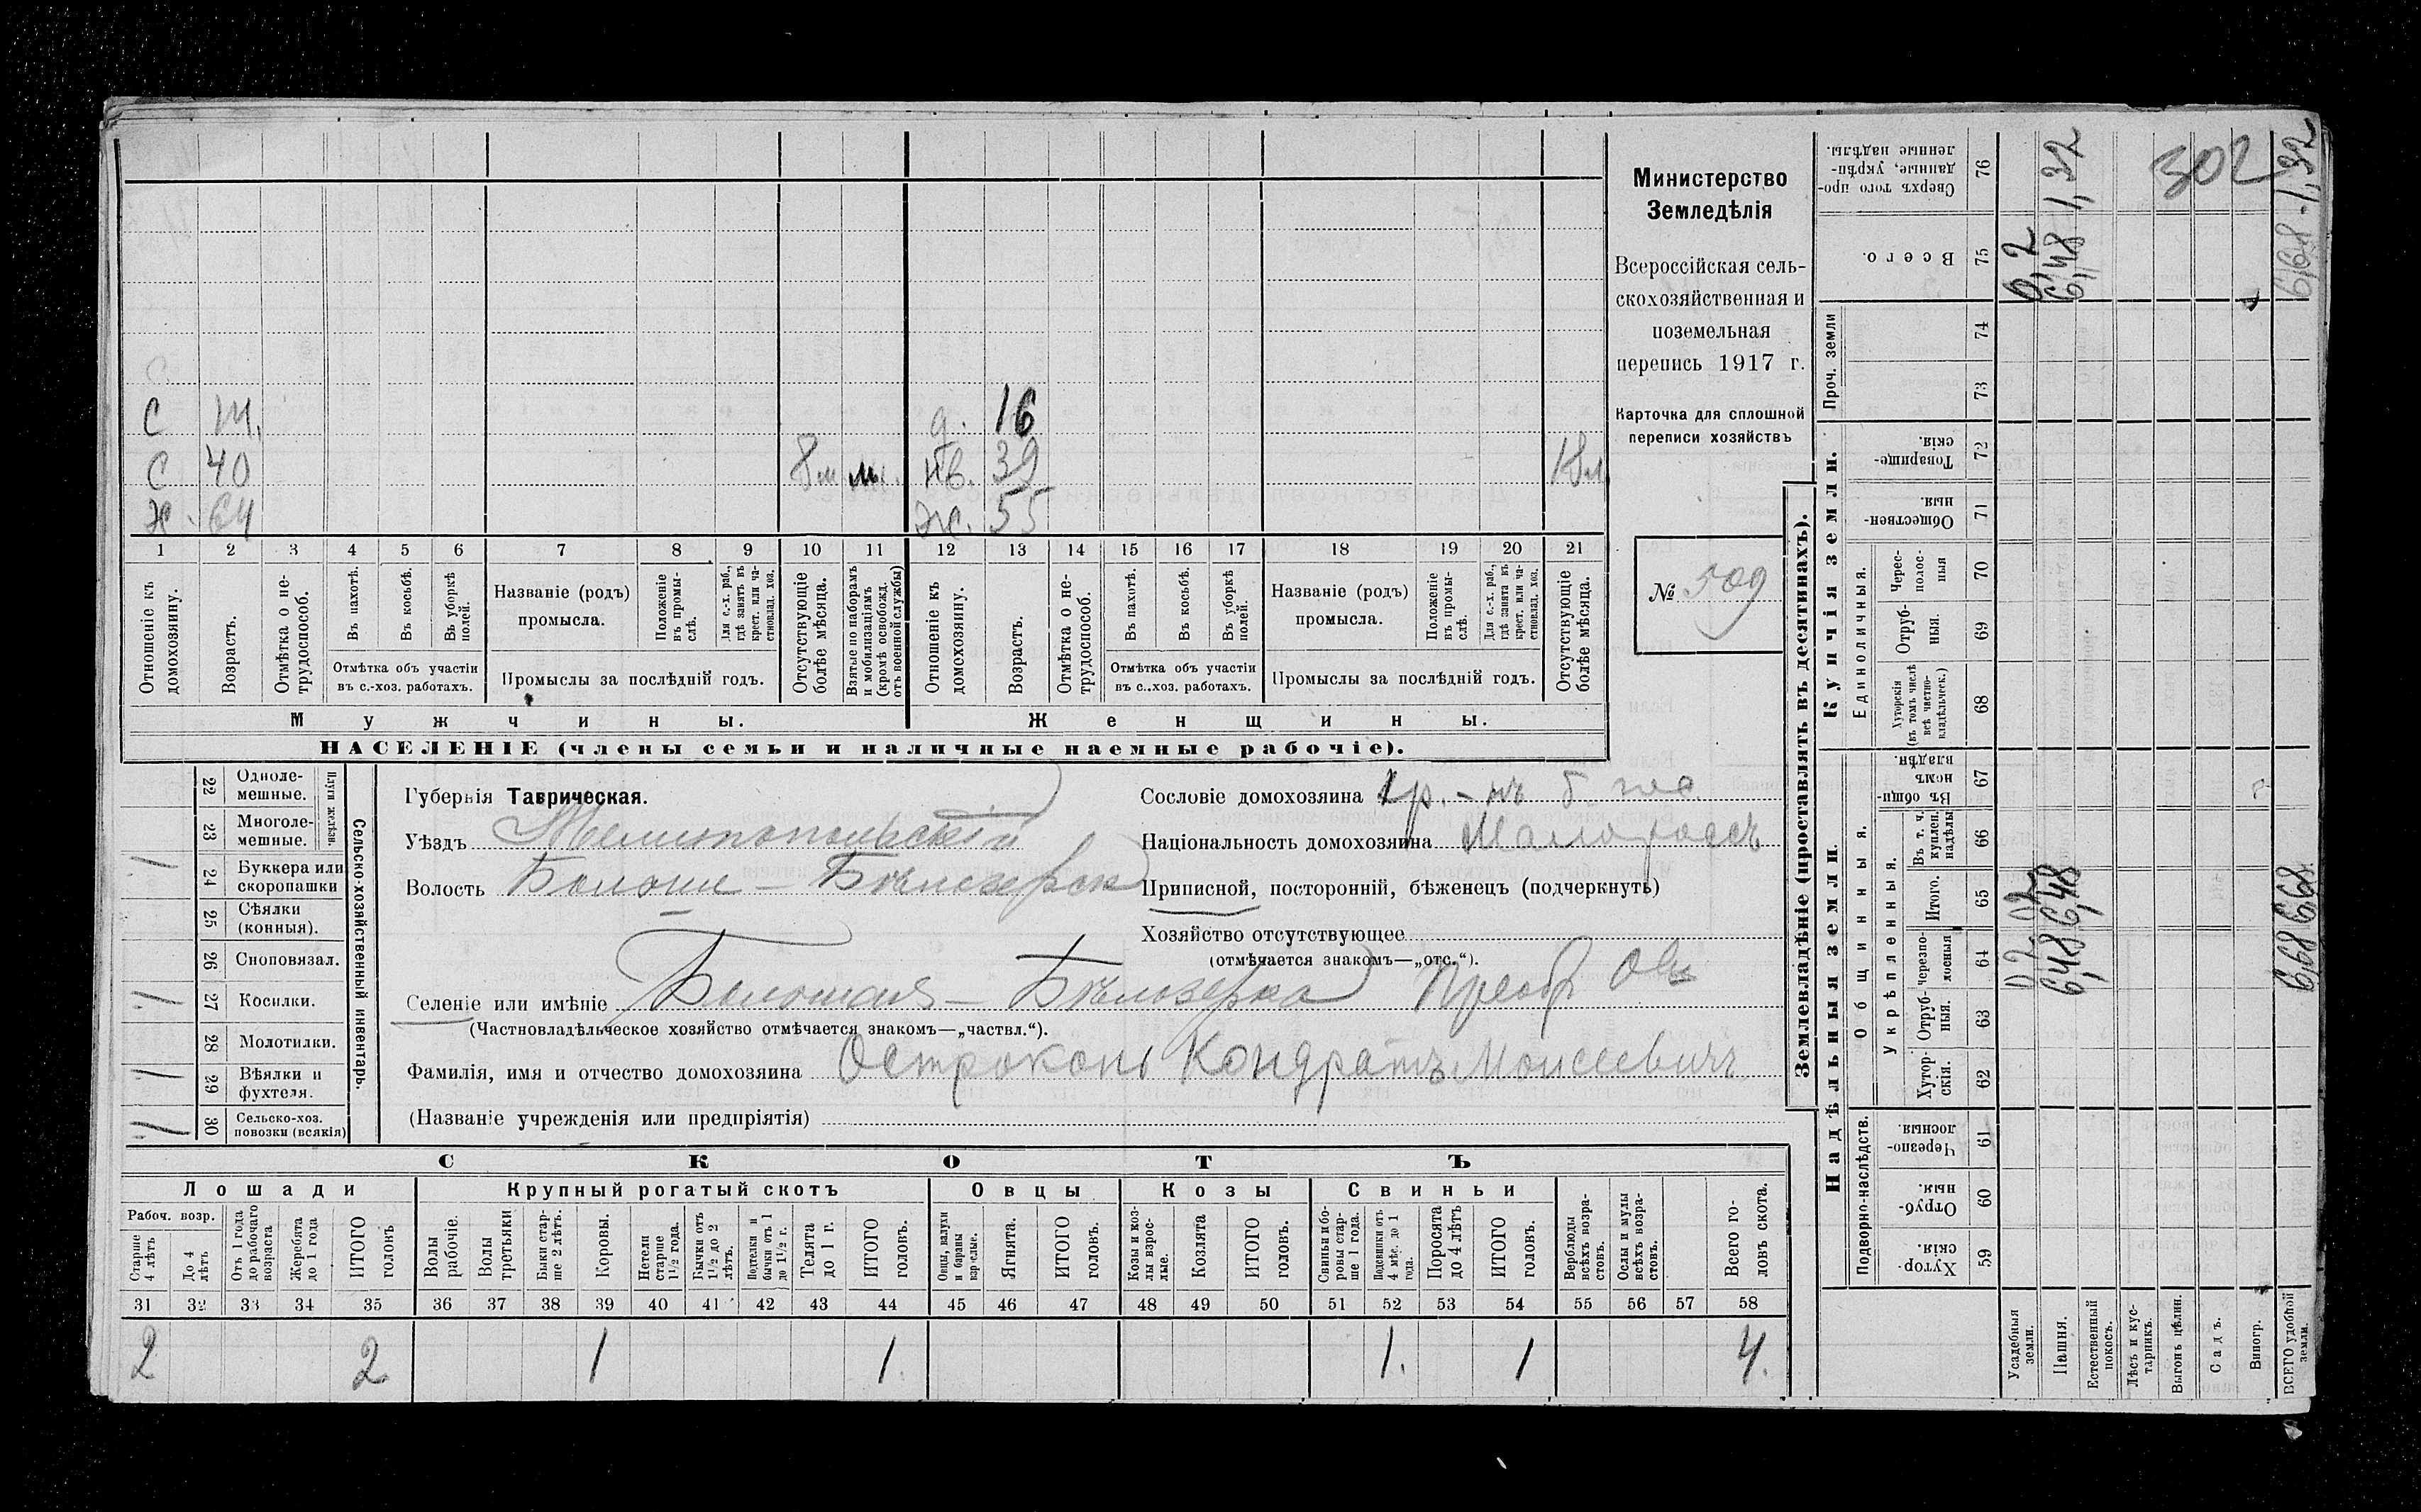 Министерство
Земледѣлія
Всероссійская сель-
скохозяйственная и
поземельная
перепись 1917 г.
Карточка для сплошной
переписи хозяйствъ
№ 509
302
С
С 14. д. 16
С 40 39
64 ж. 55
1 2 3 4 5 6 7 8 9 10 11 12 13 14 15 16 17 18 19 20 21
Отношеніе къ домохозяину.
Возрастъ.
Отмѣтка о не-трудоспособ.
Въ пахотѣ.
Въ косьбѣ.
Въ уборкѣ полей.
Отмѣтка объ участіи
въ с.-хоз. работахъ.
Названіе (родъ)
промысла.
Положеніе въ промы-слѣ.
Для с.-х. раб., гдѣ занятъ въ крест. или ча-стновлад. хоз.
Промыслы за послѣдній годъ.
Отсутствующіе болѣе мѣсяца.
Взятые по наборамъ и мобилизаціямъ (кромѣ освобожд. отъ военной службы)
Отношеніе къ домохозяину.
Возрастъ.
Отмѣтка о не-трудоспособ.
Въ пахотѣ.
Въ косьбѣ.
Въ уборкѣ полей.
Отмѣтка объ участіи
въ с..хоз. работахъ.
Названіе (родъ)
промысла.
Положеніе въ промы-слѣ.
Для с.-х. раб., гдѣ занята въ крест. или ча-стновлад. хоз.
Промыслы за послѣдній годъ.
Отсутствующіе болѣе мѣсяца.
Мужчины.
Женщины.
НАСЕЛЕНІЕ (члены семьи и наличные наемные рабочіе).
22 Одноле-мешные.
23 Многоле-мешные.
Плуги желѣзн.
24 Буккера или скоропашки
25 Сѣялки (конныя).
26 Сноповязал.
27 Косилки.
28 Молотилки.
29 Вѣялки и фухтеля.
30 Сельско-хоз. повозки (всякія)
Сельско-хозяйственный инвентарь.
Губернія Таврическая.
Уѣздъ Мелитопольскій
Волость Больше-Бѣлозерск
Сословіе домохозяина
Національность домохозяина Малороссъ
Приписной, посторонній, бѣженецъ (подчеркнуть)
Хозяйство отсутствующее
(отмѣчается знакомъ—„отс.“).
Селеніе или имѣніе Большая-Бѣлозерка Преобр
(Частновладѣльческое хозяйство отмѣчается знакомъ—„частвл.“).
Фамилія, имя и отчество домохозяина Остроконь Кондратъ Моисеевичъ
(Названіе учрежденія или предпріятія)
СКОТЪ
Лошади
Крупный рогатый скотъ
Овцы
Козы
Свиньи
Рабоч. возр.
Старше 4 лѣтъ
До 4 лѣтъ
Отъ 1 года до рабочаго возраста
Жеребята до 1 года
ИТОГО головъ
Волы рабочіе.
Волы третьяки
Быки стар-ше 2 лѣтъ.
Коровы.
Нетели старше 1½ года.
Бычки отъ 1½ до 2 лѣтъ.
Подтелки и бычки отъ 1 до 1½ г.
Телята до 1 г.
ИТОГО головъ.
Овцы, валухи и бараны взрослые.
Ягнята.
ИТОГО головъ.
Козы и коз-лы взрос-лые.
Козлята
ИТОГО головъ.
Свиньи и бо-ровы стар-ше 1 года.
Подсвинки отъ 4 мѣс. до 1 года.
Поросята до 4 лѣтъ
ИТОГО головъ.
Верблюды всѣхъ возра-стовъ.
Ослы и мулы всѣхъ возра-стовъ.
Всего го-ловъ скота.
31 32 33 34 35 36 37 38 39 40 41 42 43 44 45 46 47 48 49 50 51 52 53 54 55 56 57 58
2 2 1 1. 1. 1 4.
Землевладѣніе (проставлять въ десятинахъ).
Надѣльныя земли.
Купчія земли.
Проч. земли
Подворно-наслѣдств.
Общинныя.
Укрѣпленныя.
Единоличныя.
Сверхъ того про-данные, укрѣп-ленные надѣлы. 76
Всего. 75
74
73
Товарище-скія. 72
Обществен-ныя. 71
Черес-полос-ныя 70
Отруб-ныя. 69
Хуторскія (въ томъ числѣ всѣ частно-владѣльческ.) 68
Въ общи-номъ владѣн. 67
Въ т. ч. куплен. надѣлы 66
Итого. 65
черезпо-лосныя 64
Отруб-ныя. 63
Хутор-скія. 62
Черезпо-лосныя. 61
Отруб-ныя. 60
Хутор-скія. 59
Усадебныя земли. 0,2 0,2 0,2
Пашня. 6,48 6,48 6,48 1,32
Естественный покосъ.
Лѣсъ и кус-тарникъ.
Выгонъ цѣлин.
Садъ.
Виногр.
ВСЕГО удобной земли. 6,68 6,68 6,68-1,32